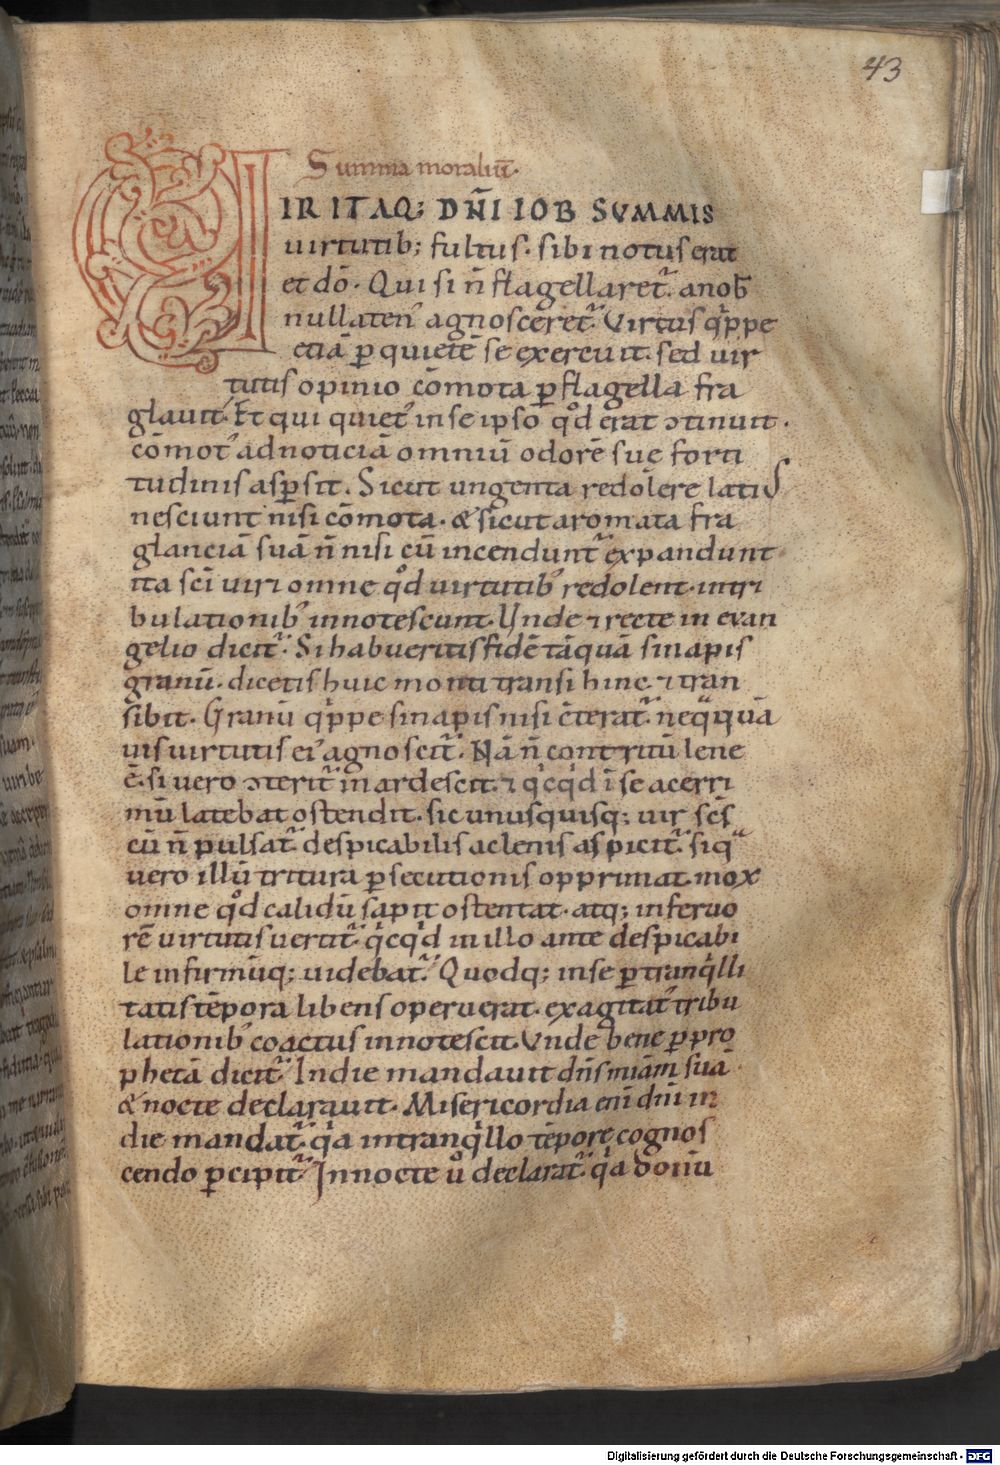 43
Summa moraliū.
VIR ITAQ; DN̄I IOB SVMMIS
uirtutib; fultus. sibi notus erat
et dō. Qui si n̄ flagellaret᷑. a nob̄
nullaten᾽ agnosceret᷑. Virtus q̊ppe
etiā p̱ quietē se exercuit. sed uir
tutis opinio cōmota p̱ flagella fra
glauit. Et qui quiet᾽ in se ipso qd̊ erat ↄtinuit.
cōmot᾽ ad noticiā omniū odorē sue forti
tudinis asp̱sit. Sicut ungenta redolere latius
nesciunt nisi cōmota. & sicut aromata fra
glanciā suā n̄ nisi cū incendunt᷑ expandunt
ita sc̄i uiri omne qd̊ uirtutib᾽ redolent. in tri
bulationib᾽ innotescunt. Unde ⁊ recte in evan
gelio dicit᷑. Si habueritis fidē tāquā sinapis
granū. dicetis huic monti transi hinc. ⁊ tran
sibit. Granū q̊ppe sinapis nisi c̄terat᷑. neq̈quā
uis uirtutis ei᾽ agnoscit᷑. Nā n̄ contritū lene
ē. si uero ↄterit᷑ inardescit. ⁊ q̊cq̊d ī se acerri
mū latebat ostendit. sic unusquisq; uir sc̄s
cū n̄ pulsat᷑. despicabilis ac lenis aspicit᷑. siq̈
uero illū tritura p̱secutionis opprimat. mox
omne qd̊ calidū sapit ostentat. atq; in feruo
rē uirtutis uertit᷑. q̊cq̊d in illo ante despicabi
le infirmūq; uidebat᷑. Quodq; in se p̱ tranq̊lli
tatis tēpora libens operuerat. exagitat᾽ tribu
lationib᾽ coactus innotescit. Vnde bene p̱ pro
phetā dicit᷑. In die mandauit dn̄s miām suā
& nocte declarauit. Misericordia eni dn̄i in
die mandat᷑. q̊a in tranq̊llo tēpore cognos
cendo p̱cipit᷑. In nocte ů declarat᷑. q̊a donū
Digitalisierung gefördert durch die Deutsche Forschungsgemeinschaft - DFG